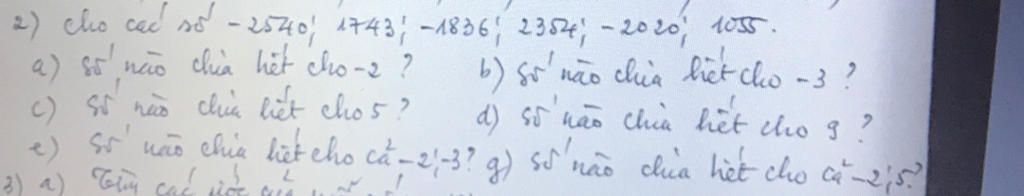 2) Cho các số -2540; 1743; -1836; 2354; -2020; 1055.
a) Số nào chia hết cho -2 ? b) Số nào chia hết cho -3 ?
c) Số nào chia hết cho 5 ? d) Số nào chia hết cho 9 ?
e) Số nào chia hết cho cả -2; -3? g) Số nào chia hết cho cả -2; 5?
3) a) Tìm các ước của